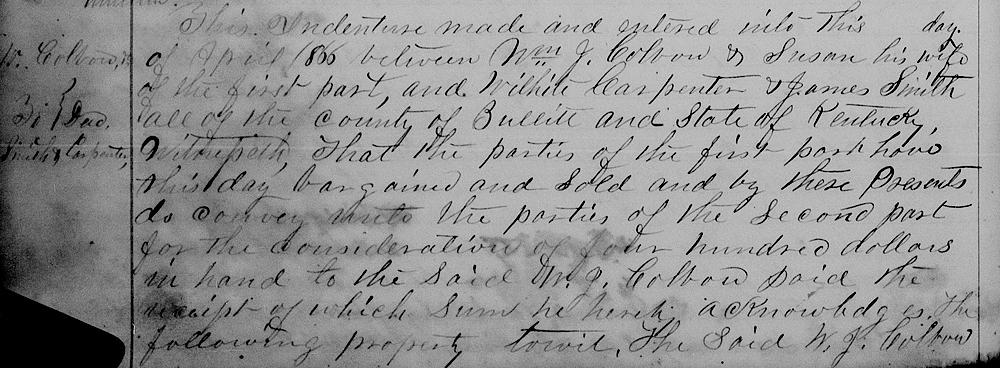 This Indenture made and entered into this day
of April 1866 between Wm J. Colvow & Susan his wife
of the first part, and Wilhite Carpenter & James Smith
all of the county of Bullitt and State of Kentucky,
Witnesseth, That the parties of the first part have
this day bargained and sold and by these Presents
do convey unto the parties of the Second part
for the consideration of four hundred dollars
in hand to the Said W. J. Colvow paid the
receipt of which Sum he hereby acknowledges. The
following property towit, The Said W. J. Colvow
Colvow,
To } Deed.
Smith & Carpenter,